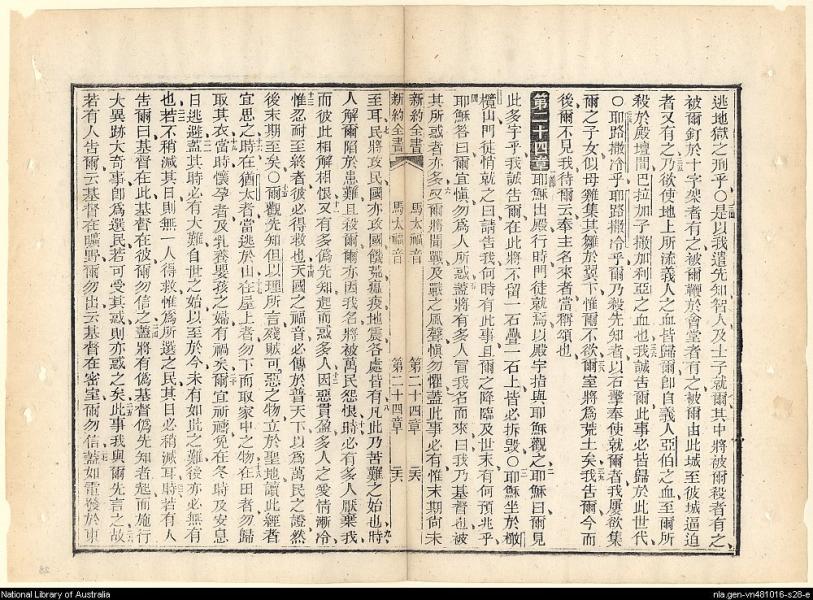 逃地獄之刑乎○是以我遣先知智人及士子就爾其中將被爾殺者有之
被爾釘於十字架者有之被爾鞭於會堂者有之被爾由此城至彼城逼迫
者又有之乃欲使地上所流義人之血皆歸爾卽自義人亞伯之血至爾所
殺於殿壇間巴拉加子撒加利亞之血也我誠告爾此事必皆歸於此世代
○耶路撒冷乎耶路撒冷乎爾乃殺先知者以石擊奉使就爾者我屢欲集
爾之子女似母雞集其雛於翼下惟爾不欲爾室將爲荒土矣我告爾今而
後爾不見我待爾云奉主名來者當稱頌也
第二十四章耶穌出殿行時門徒就焉以殿宇指與耶穌觀之耶穌曰爾見
此多宇乎我誠告爾在此將不留一石疊一石上皆必拆毀○耶穌坐於橄
欖山門徒悄就之曰請告我何時有此事且爾之降臨及世末有何預兆乎
耶穌答曰爾宜愼勿爲人所惑蓋將有多人冒我名而來曰我乃基督也被
其所惑者亦多矣爾將聞戰及戰之風聲愼勿懼蓋此事必有惟末期尚未
新約全書 馬太福音 第二十四章
新約全書 馬太福音 第二十四章
至耳民將攻民國亦攻國饑荒瘟疫地震各處皆有凡此乃苦難之始也時
人解爾陷於患難且殺爾爾亦因我名將被萬民怨恨時必有多人厭棄我
而彼此相解相恨又有多僞先知起而惑多人因惡貫盈多人之愛情漸冷
惟忍耐至終者彼必得救也天國之福音必傳於普天下以爲萬民之證然
後末期至矣○爾觀先知但以理所言殘賊可惡之物立於聖地讀此經者
宜思之時在猶太者當逃於山在屋上者勿下而取家中之物在田者勿歸
取其衣當時懷孕者及乳養嬰孩之婦有禍矣爾宜祈禱免在冬時及安息
日逃避蓋其時必有大難自世之始以至於今未有如此之難後亦必無有
也若不稍減其日則無一人得救惟爲所選之民其日必稍減耳時若有人
告爾曰基督在此基督在彼爾勿信之蓋將有僞基督僞先知者起而施行
大異跡大奇事卽爲選民若可受其惑則亦惑之矣此事我與爾先言之故
若有人告爾云基督在曠野爾勿出云基督在密室爾勿信蓋如電發於東
National Library of Australia
nla.gen-vn481016-s28-e